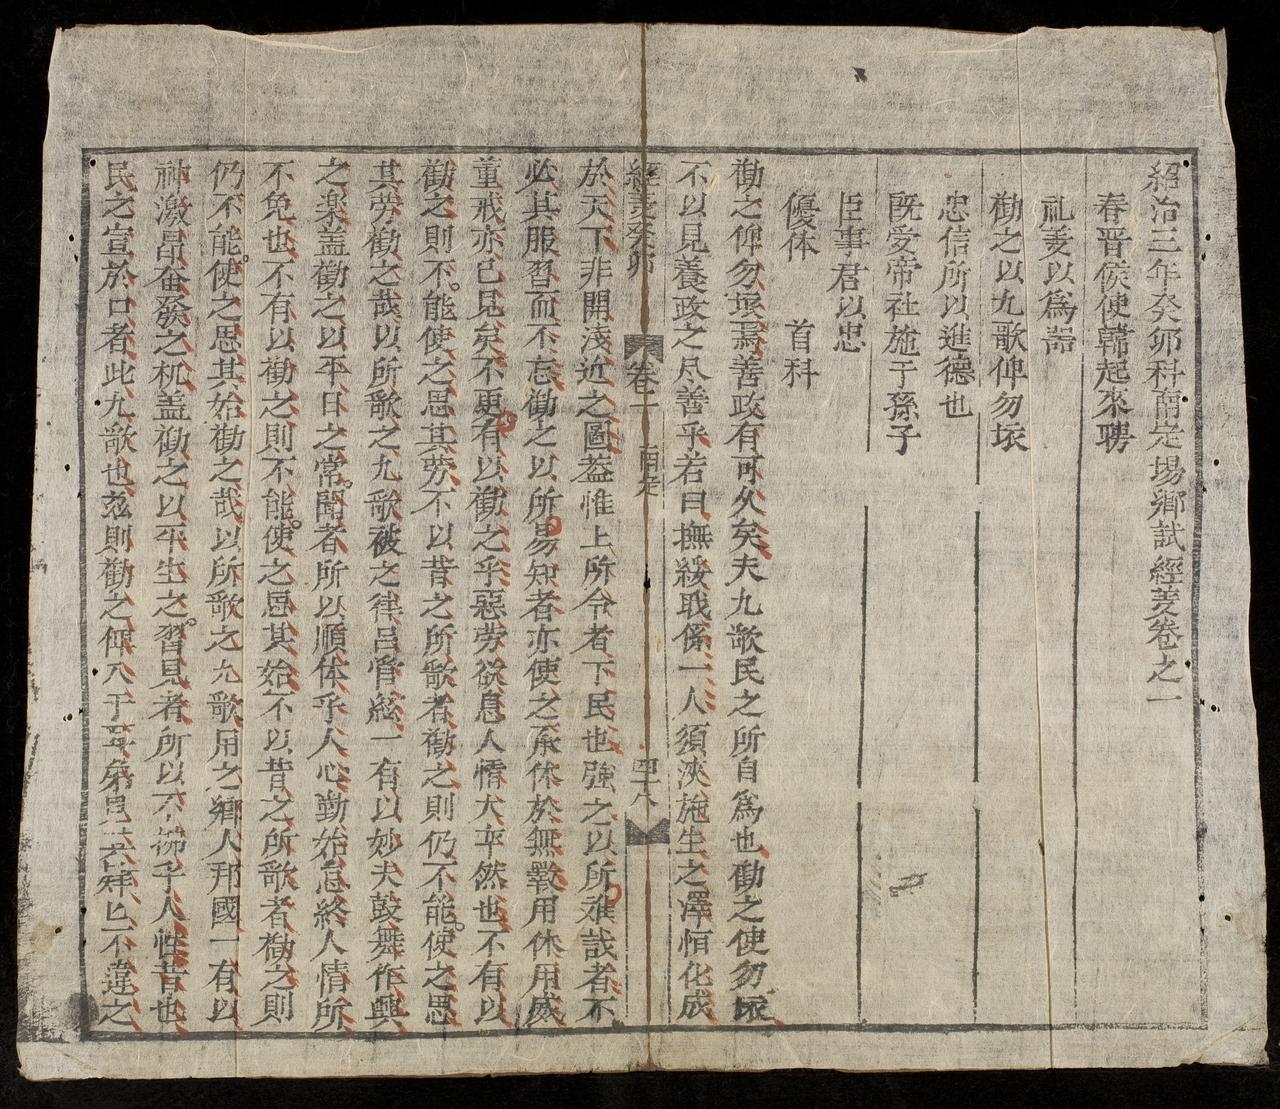 紹治三年癸卯科南定場鄉試經義卷之一
春晋侯使韓起來聘
礼義以爲噐
勸之以九歌俾勿壊
忠信所以進德也
既爱帝社施于孫子
臣事君以忠
優体 首科
勸之俾勿壊焉善政有可久矣夫九歌民之所自爲也勸之使勿壊
不以見養政之凡善乎若曰撫綏戢係一人須浹施生之澤恒化成
經義癸卯 卷一 南定 四十八
於天下非開淺近之圖葢惟上所令者下民也強之以所难哉者不
必其服習而不忘勸之以所易知者亦使之承休於無斁用休用威
董戒亦已見矣不更有以勸之乎惡劳欲息人情大卒然也不有以
勸之則不能使之思其劳不以昔之所歌者勸之則仍不能使之思
其劳勸之哉以所歌之九歌被之律吕管絃一有以妙夫鼓舞作興
之楽盖勸之以平日之常聞者所以順体乎人心勤始怠終人情所
不免也不有以勸之則不能使之思其始不以昔之所歌者勸之則
仍不能使之思其始勸之哉以所歌之九歌用之鄉人邦國一有以
神激昂奮發之机盖勸之以平生之習見者所以不拂乎人性昔也
民之宣於口者此九歌也玆則勸之俾人于不違之